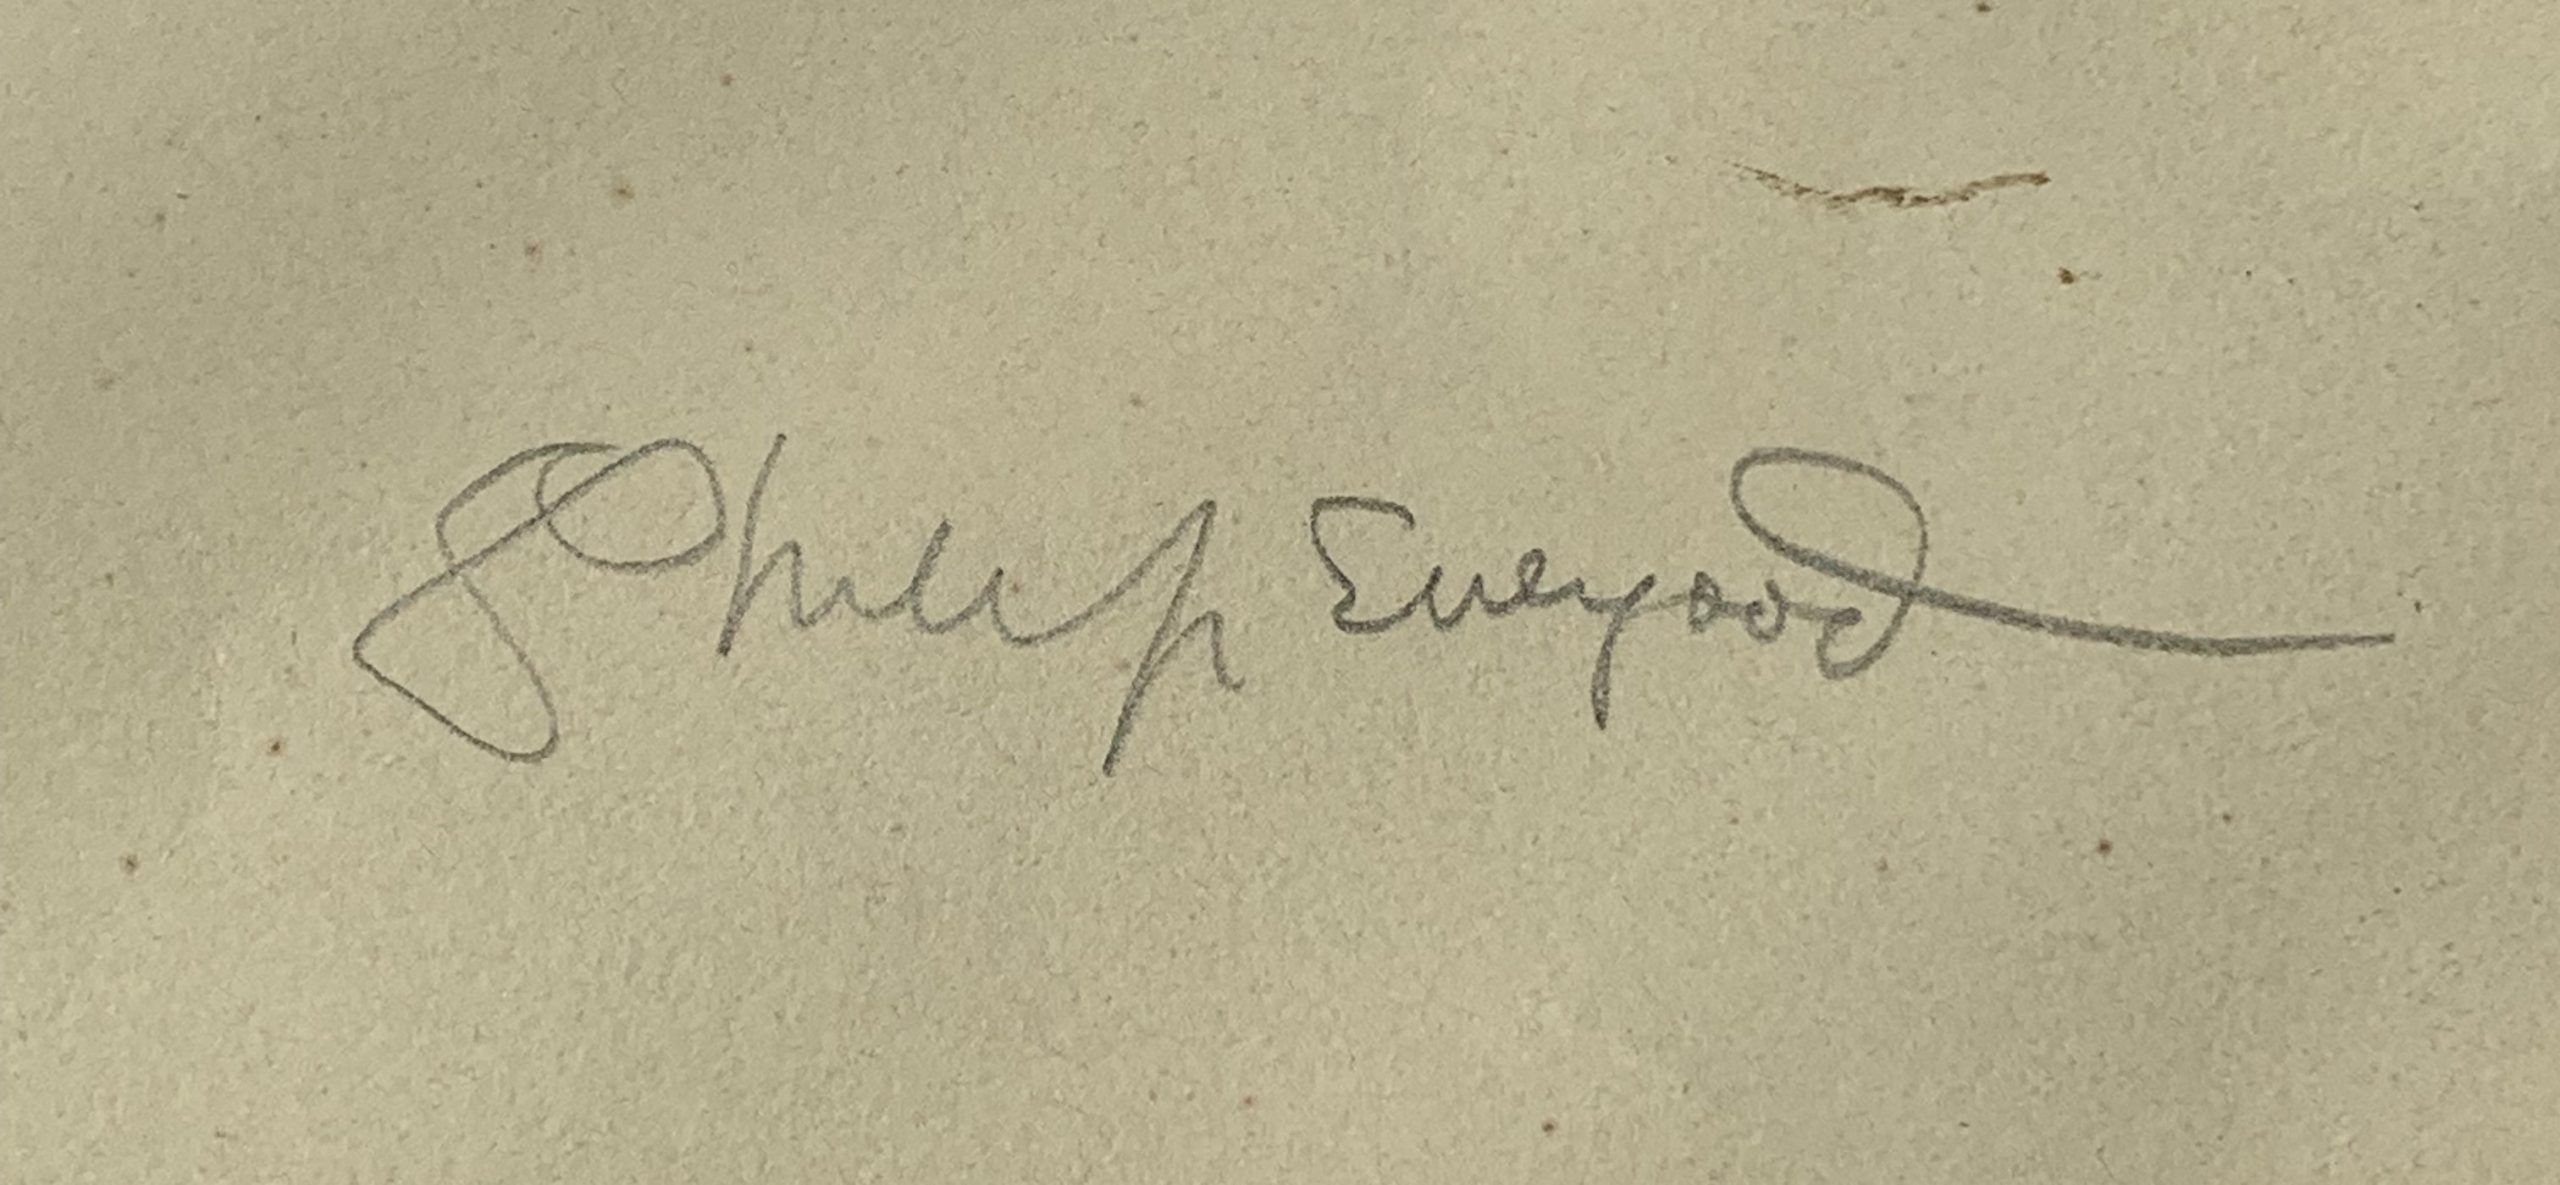 Philip Evergood